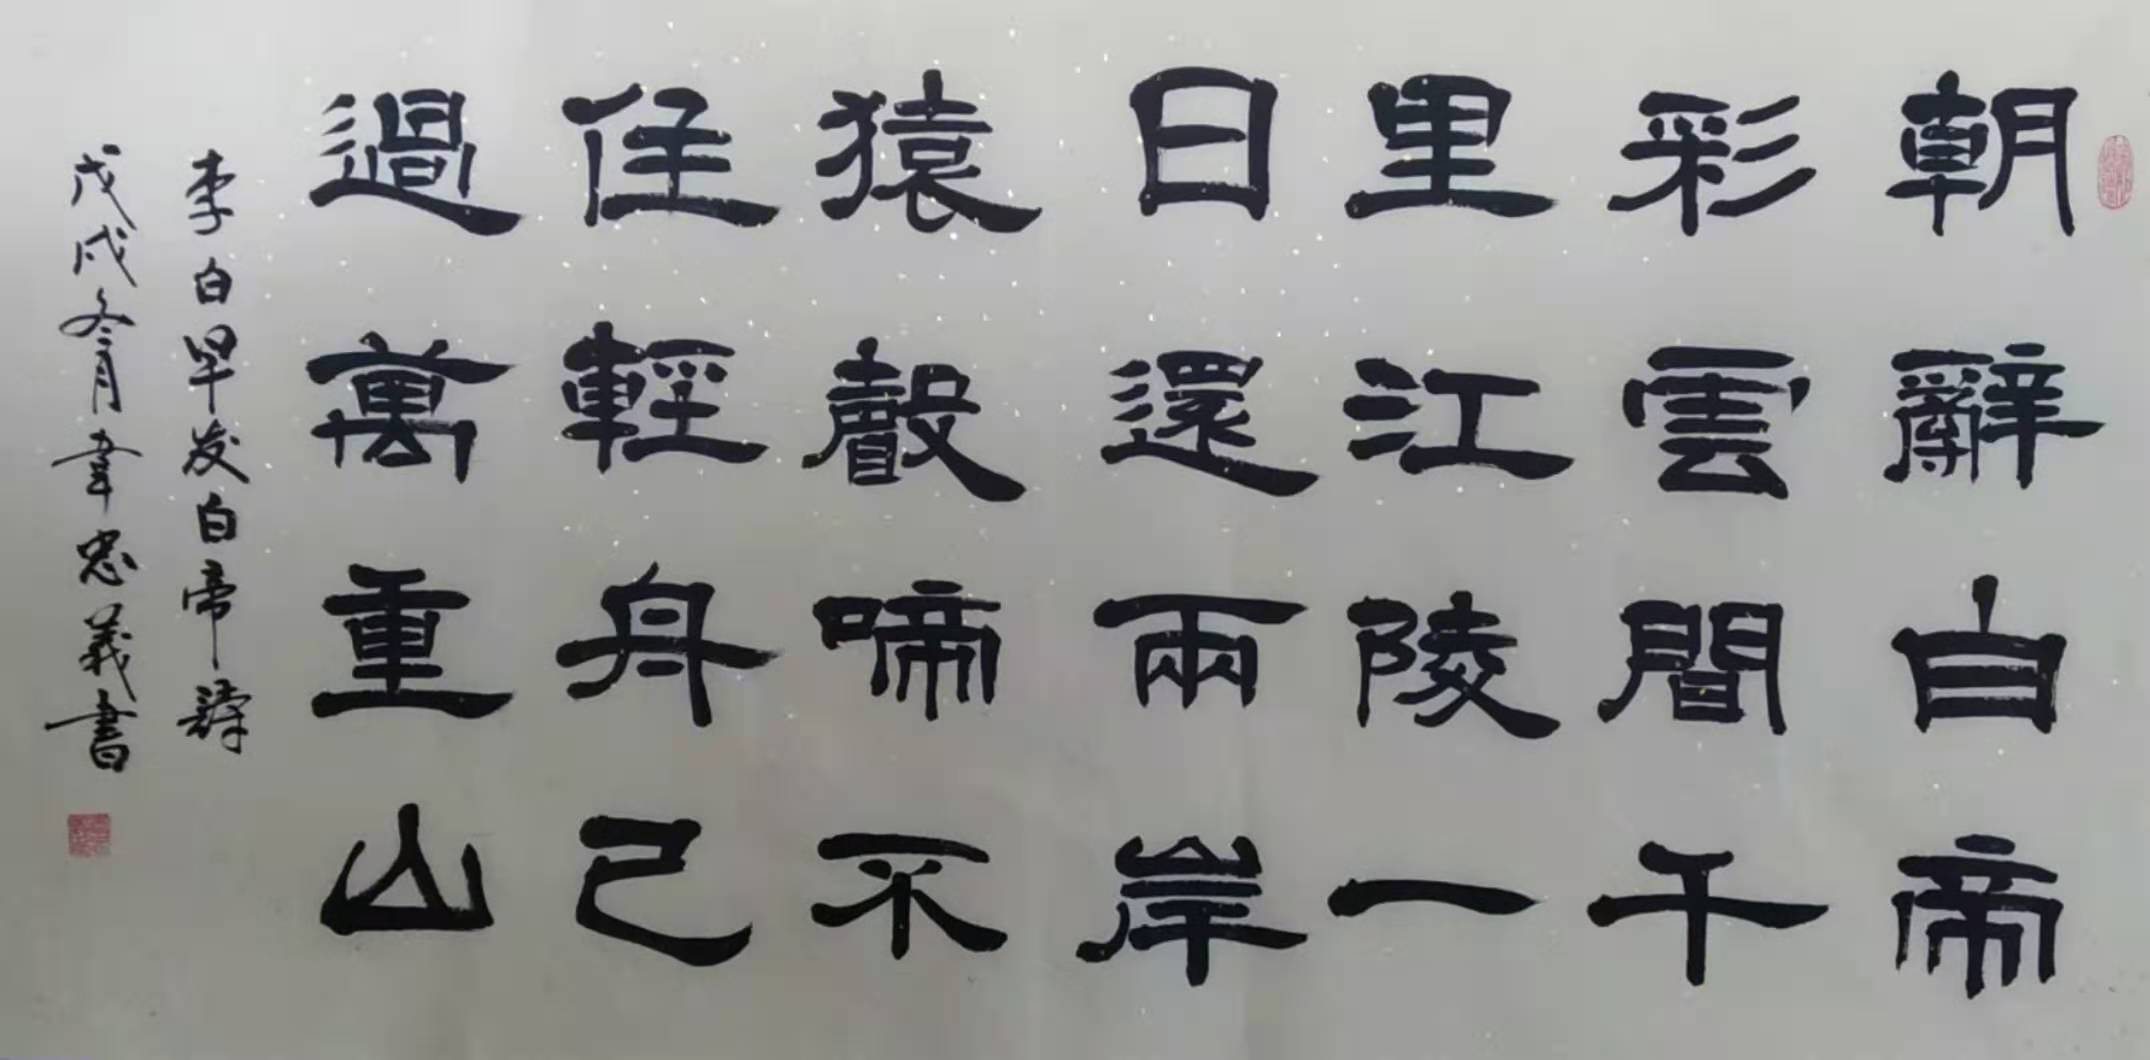 朝辭白帝
彩雲間千
里江陵一
日還兩岸
猿聲啼不
住輕舟已
過萬重山
李白早发白帝詩
戊戌冬月韋忠義書